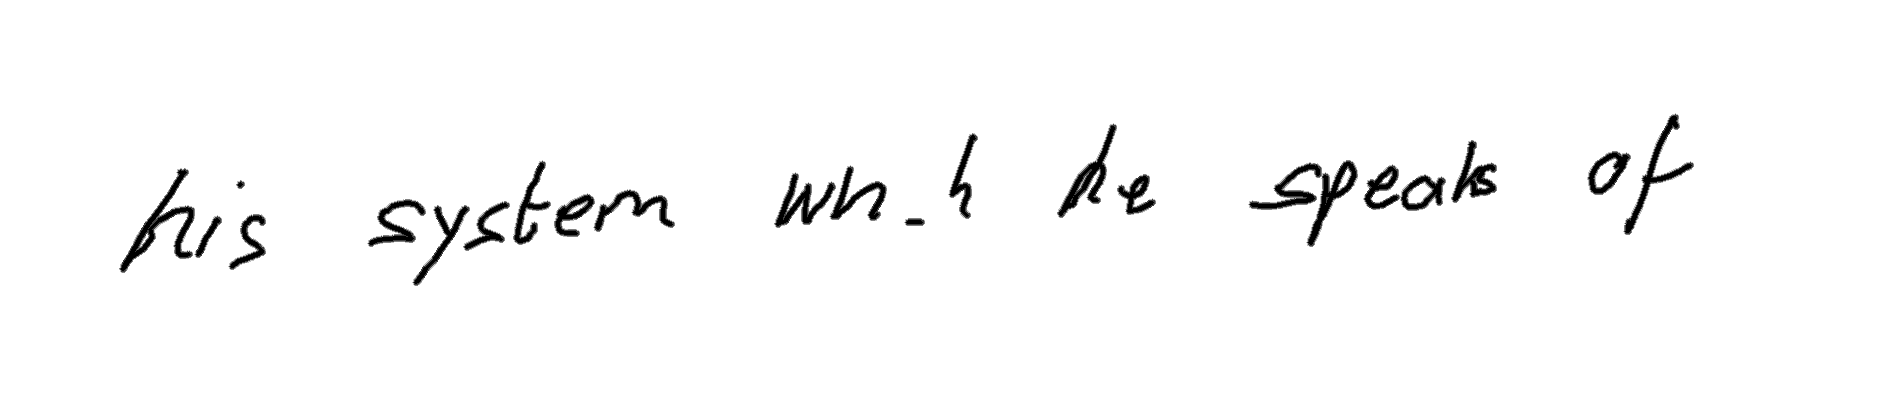 his system wh_h he speaks of